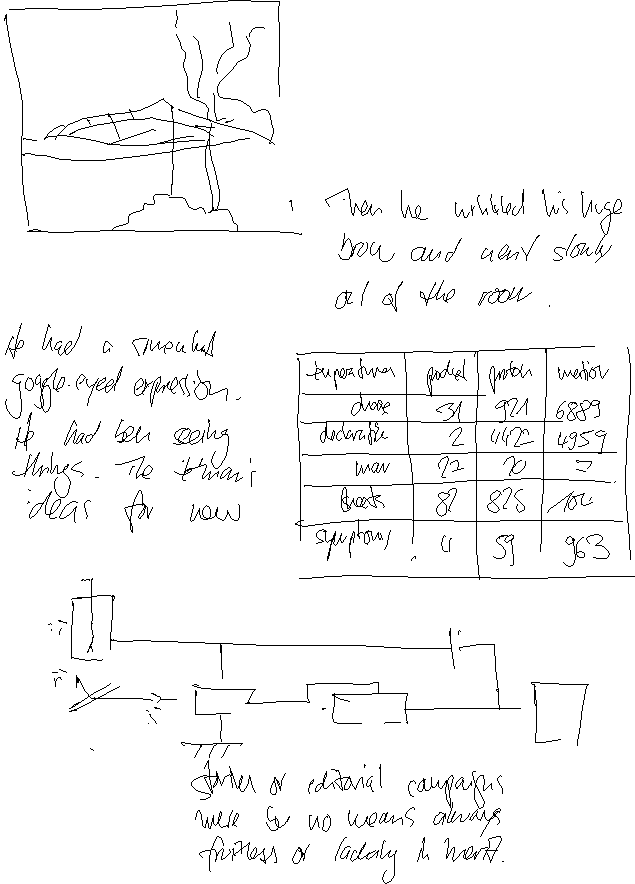 Then he wrinkled his huge
brow and went slowly
out of the room.
He had a somewhat
goggle-eyed expression.
He had been seeing
things. The woman's
ideas for new
temperatures product proton mention
chose 531 921 6889
declarative 2 4422 4959
man 22 20 7
threats 82 825 104
symptoms 4 59 963
further or editorial campaigns
were by no means always
fruitless or lacking in merit.